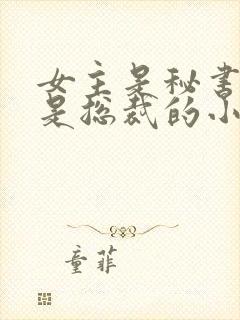 女主是秘书
是总裁的小
童菲